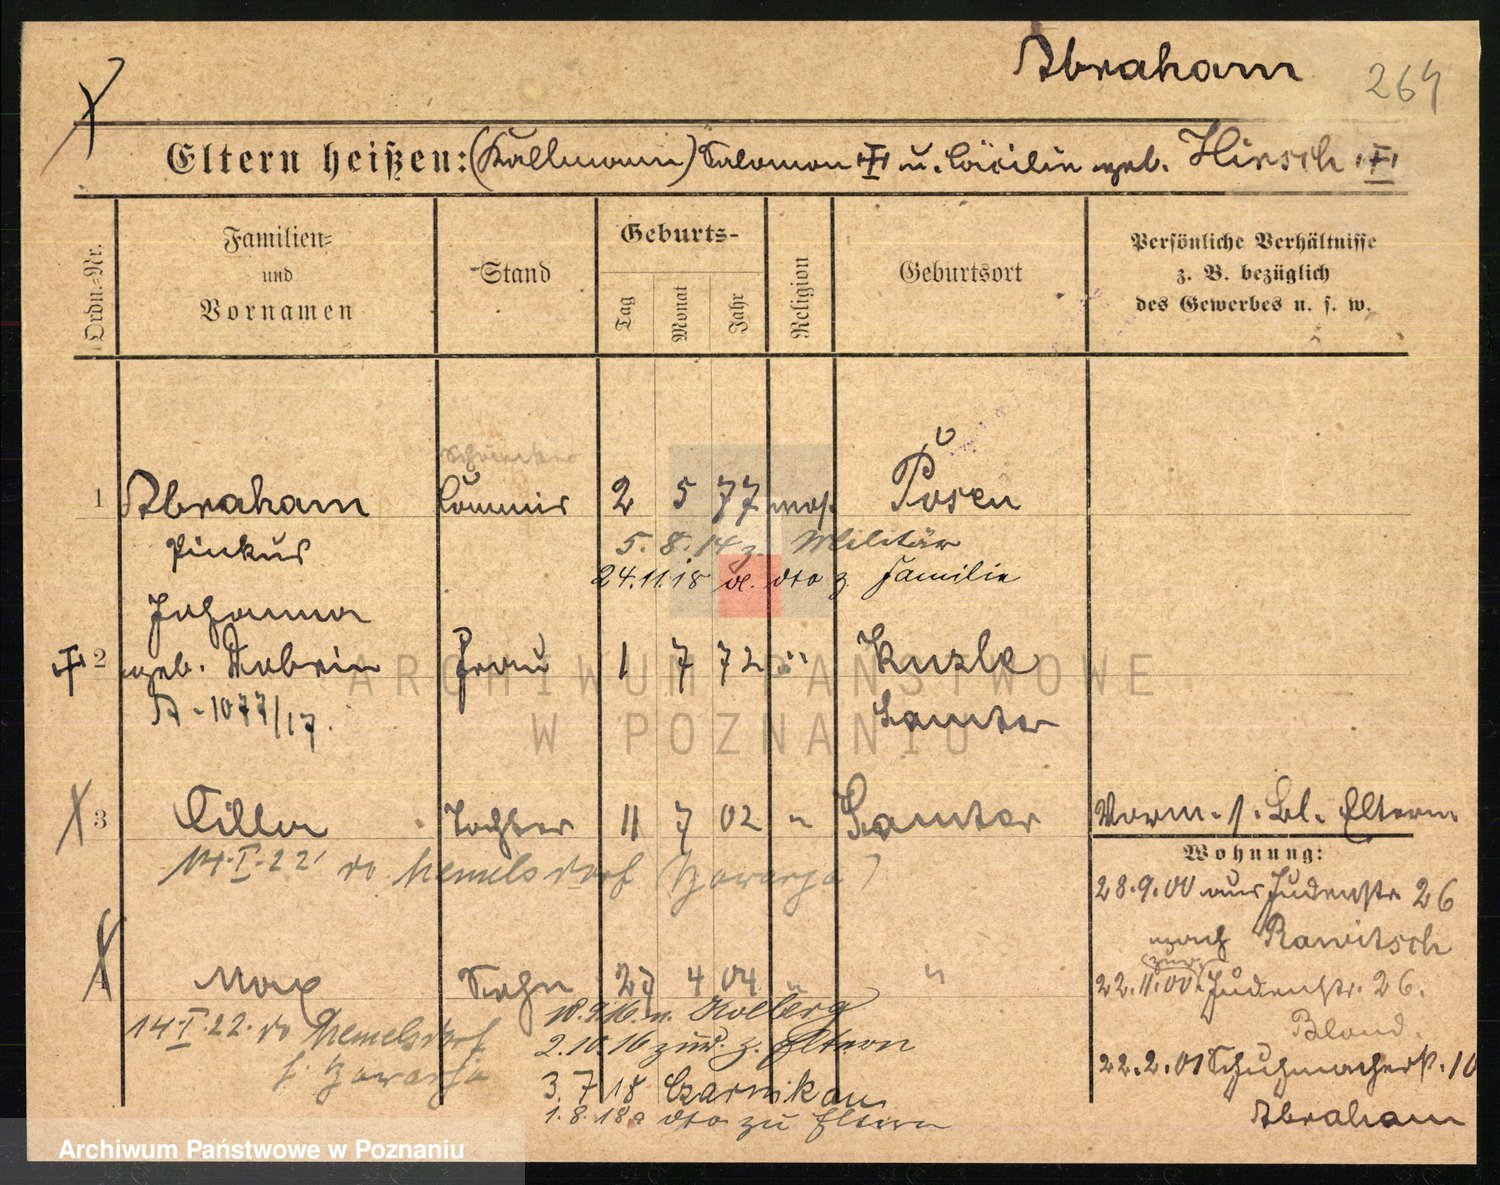 Abraham 264
Eltern heißen: (Kallmann) Salomon u. Cäcilie geb. Hirsch
Ordn.-Nr.
Familien-
und
Vornamen
Stand
Geburts-
Tag
Monat
Jahr
Religion
Geburtsort
Persönliche Verhältnisse
z. B. bezüglich
des Gewerbes u. s. w.
1 Abraham Commis 2 5 77 mos. Posen
Pinkus
5.8.14 z. Militär
24.11.18 v. dto z. Familie
Johanna
2 geb. Frau 1 7 72 "
A-1077/17.
Samter
3 Cilla Tochter 11 7 02 " Samter
14.I.22 Memelsdorf
4 Max Sohn 27 4 04 " "
14.I.22 Memelsdorf
18.9.16 n. Kolberg
2.10.16 zur. z. Eltern
3.7.18 Czarnikau
1.8.18 dto zu Eltern
Vorm. s. Bl. Eltern
Wohnung:
28.9.00 aus Judenstr 26
nach Rawitsch
22.11.00 Judenstr. 26.
22.2.01 Schuhmacherst. 10
Abraham
ARCHIWUM PAŃSTWOWE
W POZNANIU
Archiwum Państwowe w Poznaniu